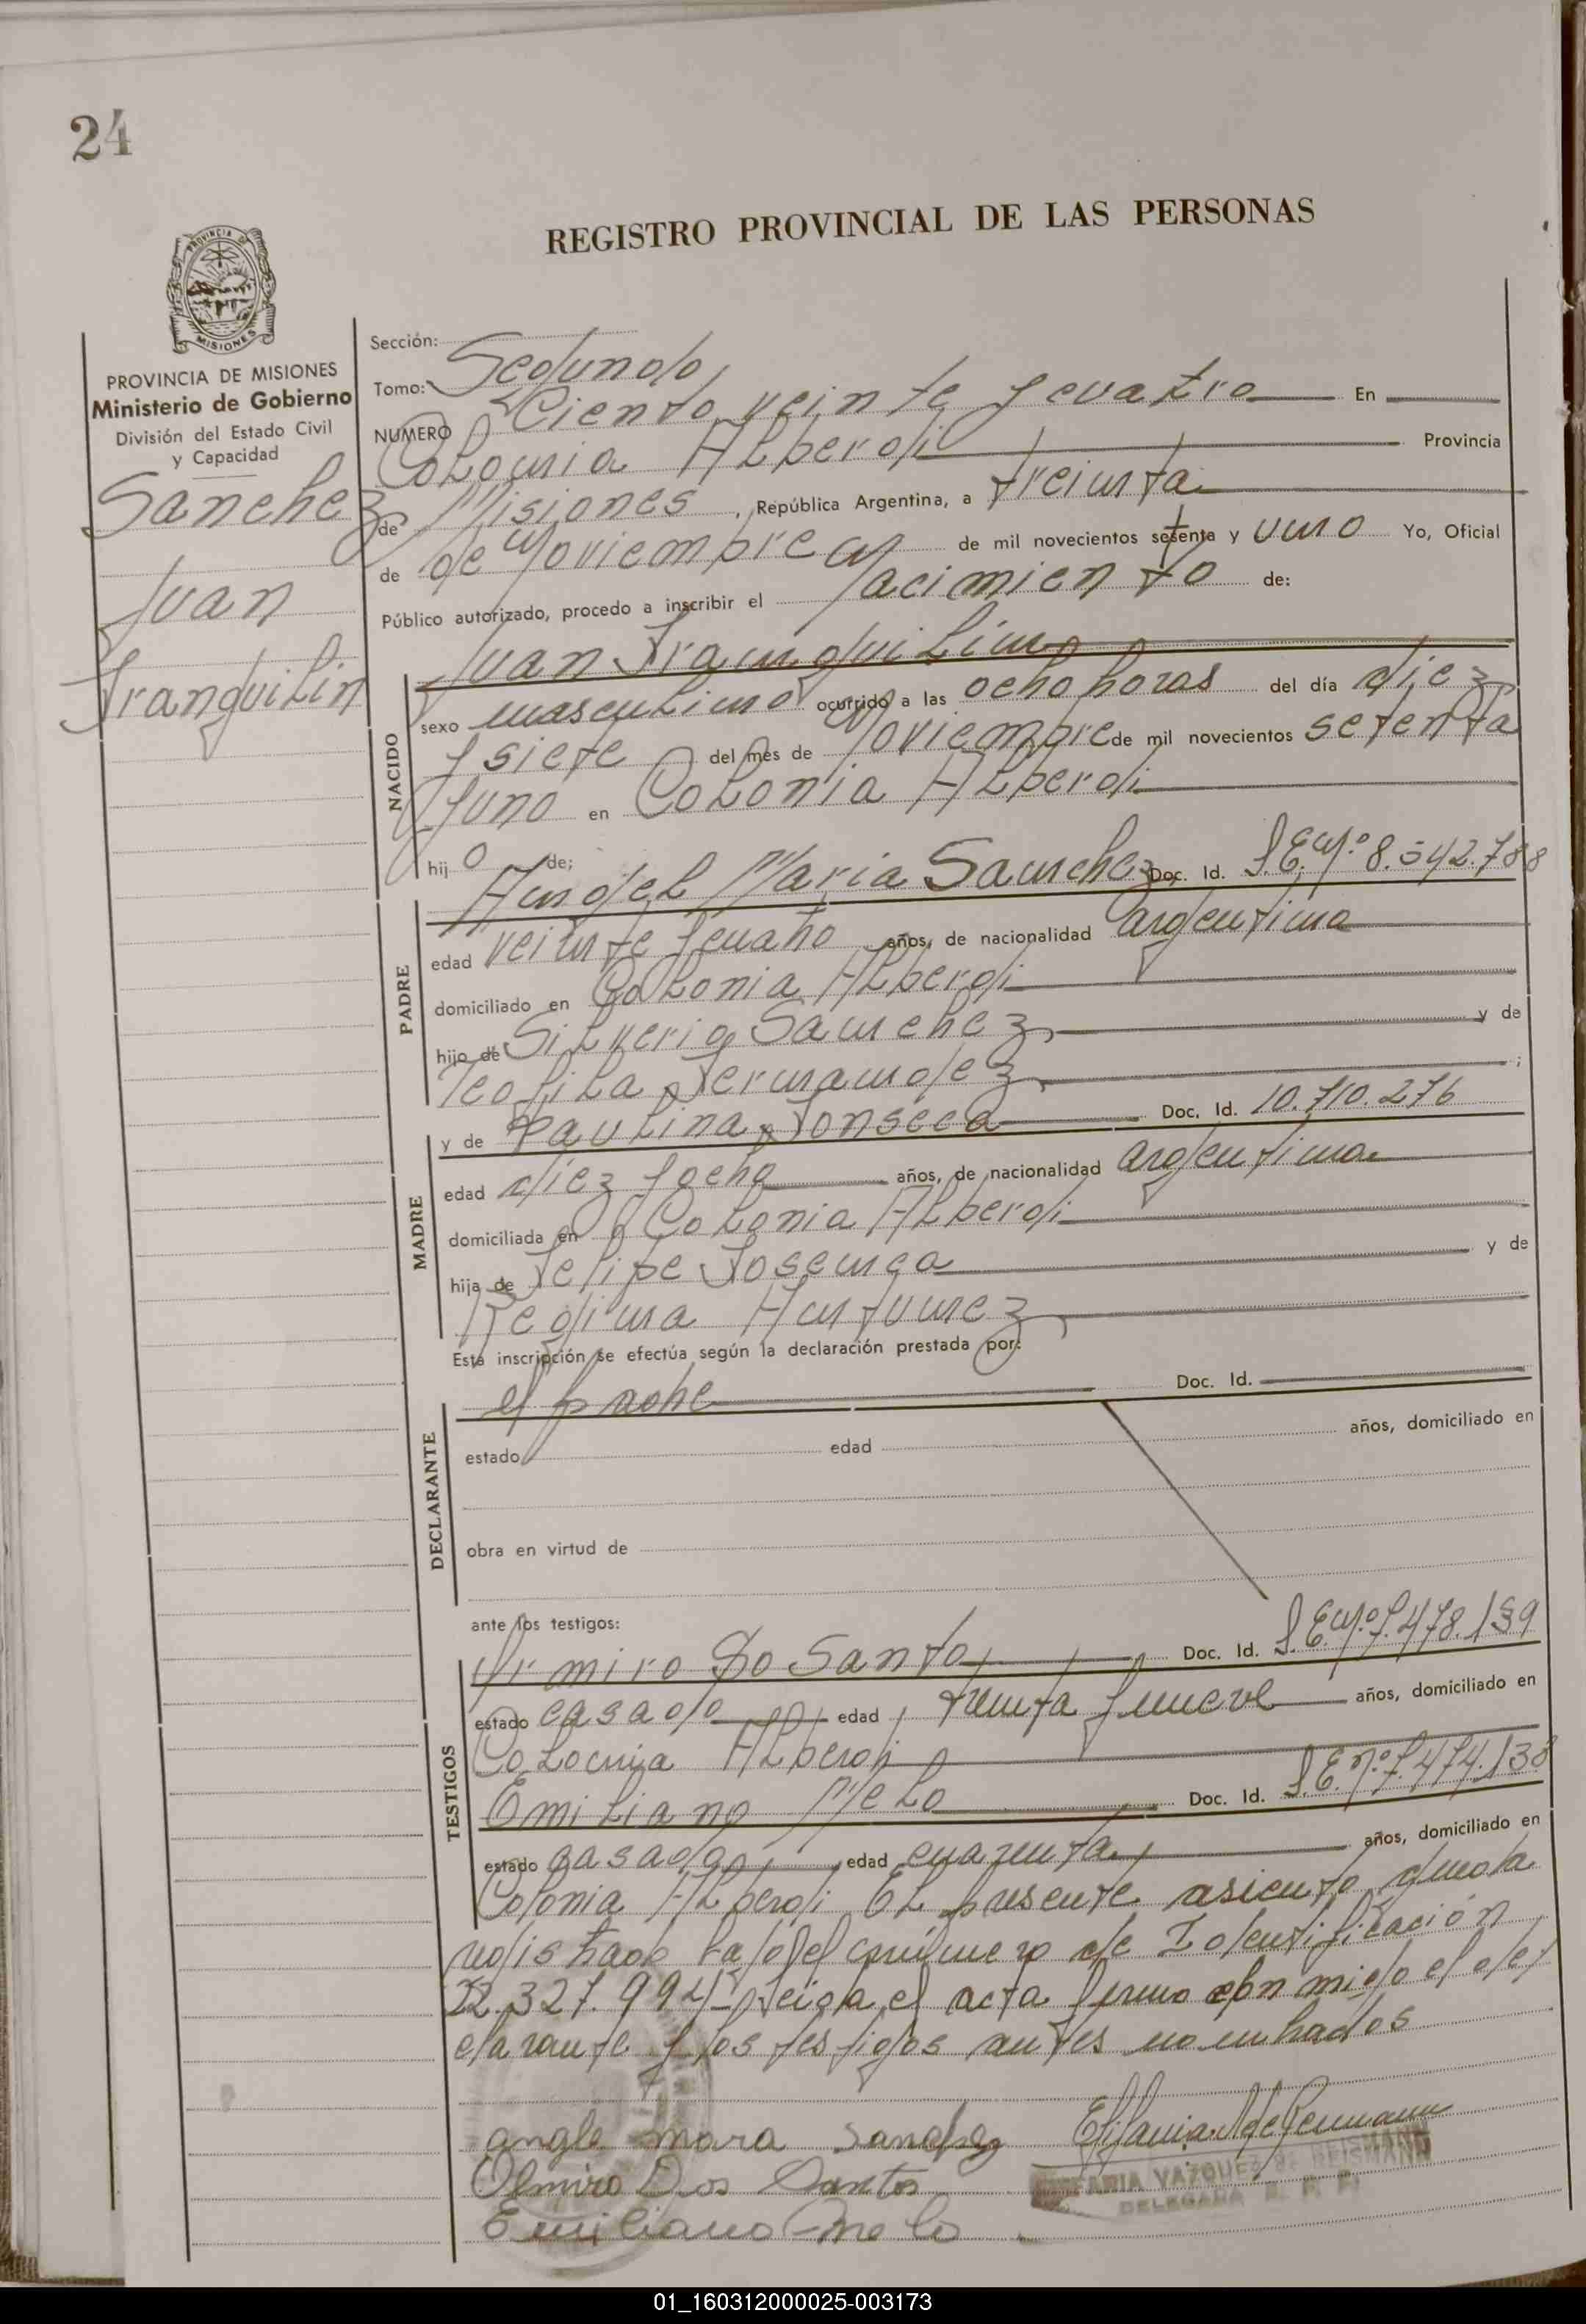 24
REGISTRO PROVINCIAL DE LAS PERSONAS
PROVINCIA DE MISIONES
Ministerio de Gobierno
División del Estado Civil
y Capacidad
Sanchez
Juan
Tranquilin
Sección:
Tomo: Segundo
NUMERO Ciento veinte y cuatro En
Colonia Alberdi Provincia
de Misiones, República Argentina, a treinta
de de Noviembre de mil novecientos setenta y uno Yo, Oficial
Público autorizado, procedo a inscribir el Nacimiento de:
NACIDO
Juan Tranquilino
sexo masculino ocurrido a las ocho horas del día diez
y siete del mes de Noviembre de mil novecientos setenta
y uno en Colonia Alberdi
hij o de;
PADRE
Angel Maria Sanchez Doc. Id. L.E.Nº 8.542.788
edad veinte y cuatro años, de nacionalidad argentina
domiciliado en Colonia Alberdi
hijo de Silverio Sanchez y de
Teofila Fernandez ;
MADRE
y de Paulina Fonseca Doc. Id. 10.710.276
edad diez y ocho años, de nacionalidad argentina
domiciliada en Colonia Alberdi
hija de Felipe y de
Regina Antunez
Esta inscripción se efectúa según la declaración prestada por:
DECLARANTE
el padre Doc. Id.
estado edad años, domiciliado en
obra en virtud de
ante los testigos:
TESTIGOS
Do Santo Doc. Id. L.E.Nº 7.478.139
estado casado edad treinta y nueve años, domiciliado en
Colonia Alberdi
Emiliano Melo Doc. Id. L.E.Nº 7.474.138
estado casado edad cuarenta años, domiciliado en
Colonia Alberdi El presente asiento queda
registrado bajo el número de Identificación
22.327.994 - leida el acta firma conmigo el de
clarante y los testigos antes nombrados
angle mara sanchez
Olmiro Dos Santos
Emiliano Melo
VAZQUEZ DE REISMANN
DELEGADA R. P. P.
01_160312000025-003173